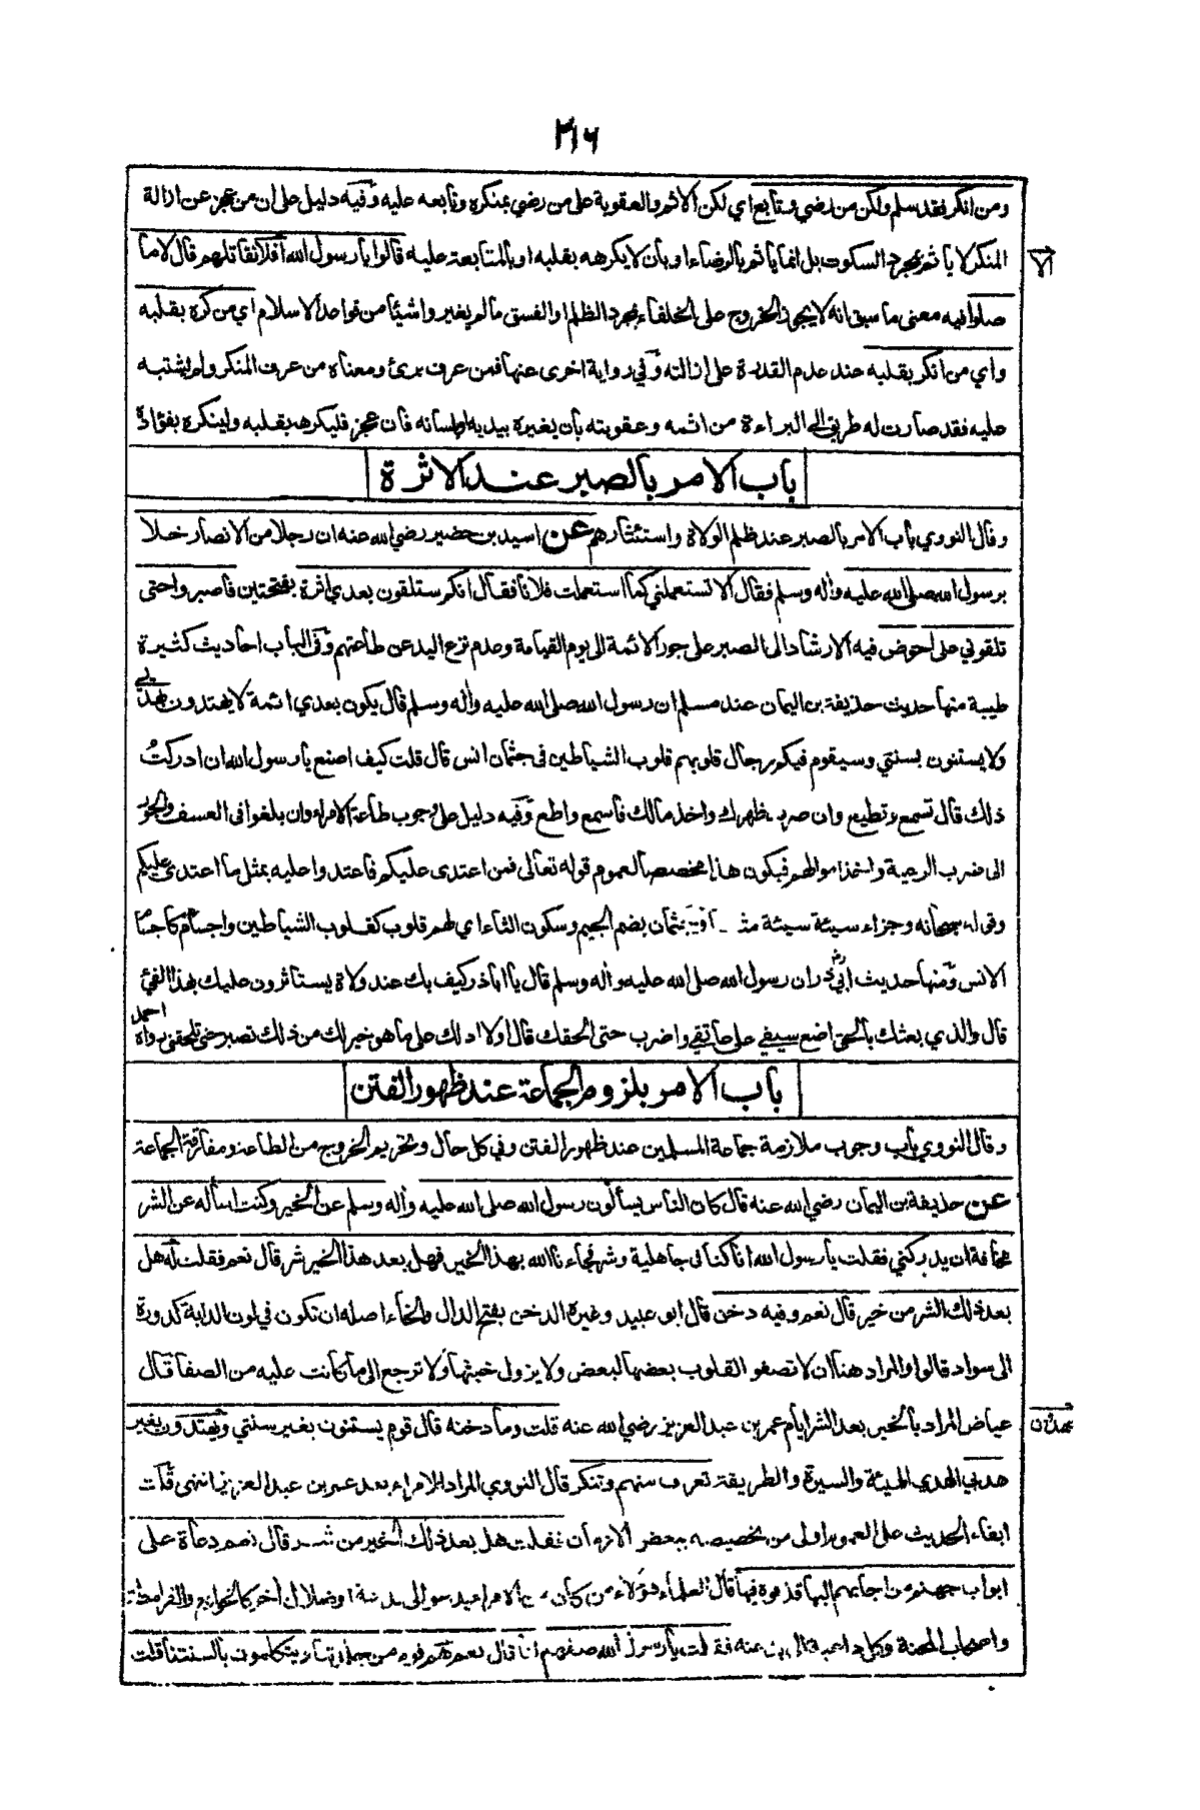 ٣١٦
ومن انكر فقد سلم ولكن من رضي وتابع اي لكن الاثم والعقوبة على من رضي بمنكره وتابعه عليه وفيه دليل على ان من عجز عن ازالة
المنكر لا يأثم بمجرد السكوت بل انما يأثم بالرضاء او بان لا يكرهه بقلبه او بالمتابعة عليه قالوا يا رسول الله افلا نقاتلهم قال لا ما
الا
صلوا فيه معنى ما سبق انه لا يجوز الخروج على الخلفاء بمجرد الظلم او الفسق ما لم يغيروا شيئا من قواعد الاسلام اي من كره بقلبه
واي من انكر بقلبه عند عدم القدرة على ازالته وفي رواية اخرى عنها فمن عرف برئ ومعناه من عرف المنكر ولم يشتبه
عليه فقد صارت له طريق الى البراءة من اثمه وعقوبته بان يغيره بيديه او لسانه فان عجز فليكرهه بقلبه ولينكره بفؤاده
باب الامر بالصبر عند الاثرة
وقال النووي باب الامر بالصبر عند ظلم الولاة واستئثارهم عن اسيد بن حضير رضي الله عنه ان رجلا من الانصار خلا
برسول الله صلى الله عليه وأله وسلم فقال الا تستعملني كما استعملت فلانا فقال انكم ستلقون بعدي اثرة بفتحتين فاصبروا حتى
تلقوني على الحوض فيه الارشاد الى الصبر على جور الائمة الى يوم القيامة وعدم نزع اليد عن طاعتهم وفي الباب احاديث كثيرة
طيبة منها حديث حذيفة بن اليمان عند مسلم ان رسول الله صلى الله عليه وأله وسلم قال يكون بعدي ائمة لا يهتدون بهداي
ولا يستنون بسنتي وسيقوم فيكم رجال قلوبهم قلوب الشياطين في جثمان انس قال قلت كيف اصنع يا رسول الله ان ادركتُ
ذلك قال تسمع وتطيع وان ضرب ظهرك واخذ مالك فاسمع واطع وفيه دليل على وجوب طاعة الامراء وان بلغوا في العسف والجور
الى ضرب الرعية واخذ اموالهم فيكون هذا مخصصا لعموم قوله تعالى فمن اعتدى عليكم فاعتدوا عليه بمثل ما اعتدى عليكم
وقوله سبحانه وجزاء سيئة سيئة بجثمان بضم الجيم وسكون الثاء اي لهم قلوب كقلوب الشياطين واجسام كاجسام
الانس ومنها حديث ابي ذر ان رسول الله صلى الله عليه وأله وسلم قال يا اباذر كيف بك عند ولاة يستأثرون عليك بهذا الفيء
قال والذي بعثك بالحق اضع سيفي على عاتقي واضرب حتى الحقك قال اولا ادلك على ما هو خير لك من ذلك تصبر حتى تلحقني رواه احمد
باب الامر بلزوم الجماعة عند ظهور الفتن
وقال النووي باب وجوب ملازمة جماعة المسلمين عند ظهور الفتن وفي كل حال وتحريم الخروج من الطاعة ومفارقة الجماعة
عن حذيفة بن اليمان رضي الله عنه قال كان الناس يسألون رسول الله صلى الله عليه وأله وسلم عن الخير وكنت اسأله عن الشر
مخافة ان يدركني فقلت يا رسول الله انا كنا في جاهلية وشر فجاءنا الله بهذا الخير فهل بعد هذا الخير شر قال نعم فقلت له هل
بعد ذلك الشر من خير قال نعم وفيه دخن قال ابو عبيد وغيره الدخن بفتح الدال والخاء اصله ان تكون في لون الدابة كدورة
الى سواد قالوا والمراد هنا ان لا تصفو القلوب بعضها لبعض ولا يزول خبثها ولا ترجع الى ما كانت عليه من الصفا قال
عياض المراد بالخير بعد الشر ايام عمر بن عبد العزيز رضي الله عنه قلت وما دخنه قال قوم يستنون بغير سنتي ويهتدون بغير
يهدون
هديي الهدي الهيئة والسيرة والطريقة تعرف منهم وتنكر قال النووي المراد الامراء بعد عمر بن عبد العزيز انتهى قلت
ابقاء الحديث على العموم اولى من تخصيصه ببعض الازمان فقلت هل بعد ذلك الخير من شر قال نعم دعاة على
ابواب جهنم من اجابهم اليها قذفوه فيها قال العلماء هؤلاء من كان من الامراء يدعو الى بدعة او ضلال اخر كالخوارج والقرامطة
واصحاب المحنة فقلت يا رسول الله صفهم لنا قال نعم هم قوم من جلدتنا ويتكلمون بالسنتنا قلت